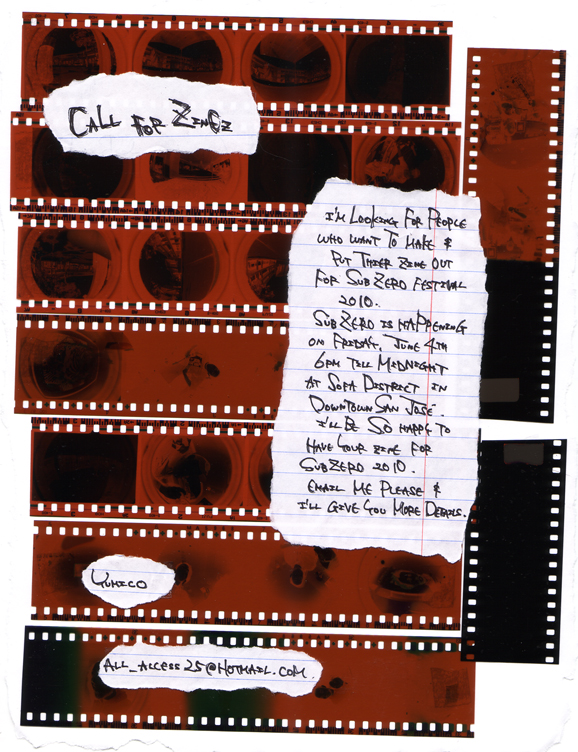 CALL FOR ZINEZ
I'M LOOKING FOR PEOPLE
WHO WANT TO MAKE &
PUT THIER ZINE OUT
FOR SUBZERO FESTIVAL
2010.
SUBZERO IS HAPPENING
ON FRIDAY, JUNE 4TH
6PM TILL MIDNIGHT
AT SOFA DISTRICT IN
DOWNTOWN SAN JOSE.
I'LL BE SO HAPPY TO
HAVE YOUR ZINE FOR
SUBZERO 2010.
EMAIL ME PLEASE &
I'LL GIVE YOU MORE DETAILS.
YUMICO
ALL_ACCESS25@HOTMAIL.COM.